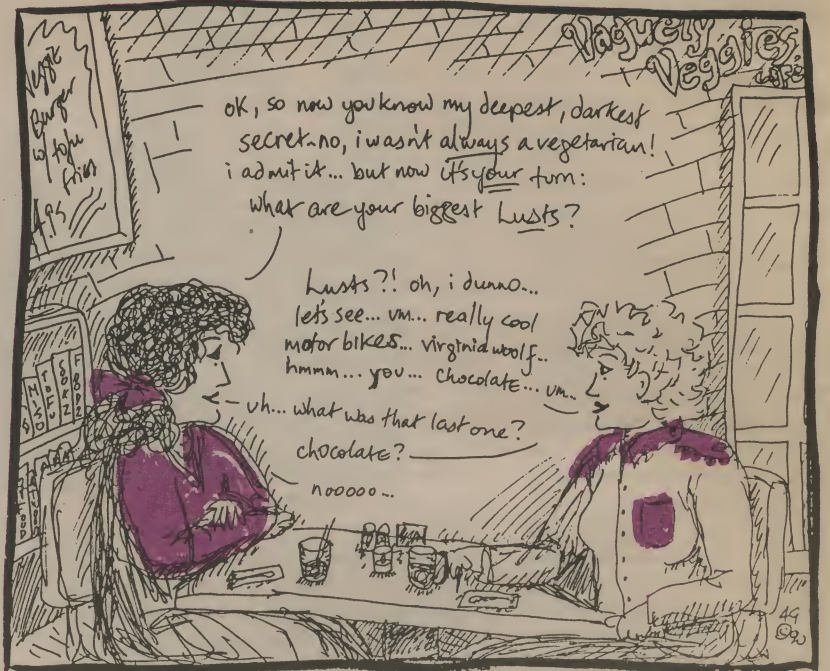 Vaguely
Veggies
café
Veggie
Burger
w/ tofu
fries
4.95
OK, so now you know my deepest, darkest
secret-no, i wasn't always a vegetarian!
i admit it... but now it's your turn:
what are your biggest Lusts?
Lusts?! oh, i dunno...
let's see... um... really cool
motor bikes... virginia woolf...
hmmm... you... chocolate... um...
uh... what was that last one?
chocolate?
nooooo...
MISO
TOFU
AG
©90